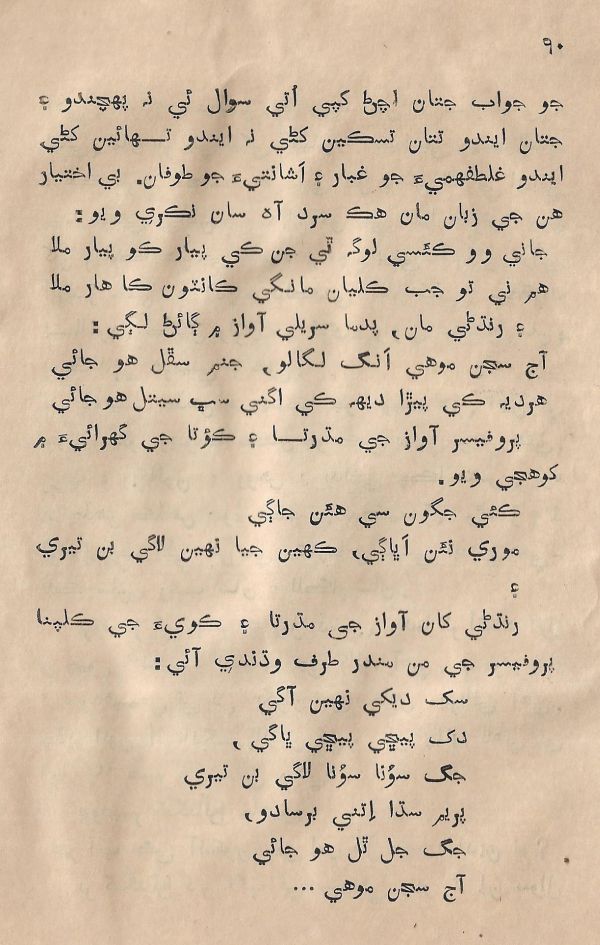 ۹۰
جو جواب جتان اچڻ کپي اُتي سوال ئي نہ پهچندو ۽
جتان ايندو تتان تسڪين کڻي نہ ايندو تـــهائين کڻي
ايندو غلطفهميءَ جو غبار ۽ اَشانتيءَ جو طوفان. بي اختيار
هن جي زبان مان هڪ سرد آه سان نڪري ويو:
جاني وو ڪئسي لوگہ ٿي جن کي پيار کو پيار ملا
هم ني تو جب ڪليان مانگي ڪانٽون ڪا هار ملا
۽ رنڌڻي مان, پدما سريلي آواز ۾ ڳائڻ لڳي:
آج سجن موهي اَنگ لگالو, جنم سڦل هو جائي
هرديہ کي پيڙا ديهہ کي اگني سڀ سيتل هو جائي
پروفيسر آواز جي مڌرتــا ۽ ڪوُتا جي گهرائيءَ ۾
کوهجي ويو.
ڪئي جگون سي هئن جاڳي
موري نئن اَڀاڳي, ڪهين جيا نهين لاگي بن تيري
۽
رنڌڻي کان آواز جي مڌرتا ۽ ڪويءَ جي ڪلپنا
پروفيسر جي من مندر طرف وڌندي آئي:
سک ديکي نهين آگي
دک پيڇي پيڇي ڀاگي,
جگ سوُنا سوُنا لاگي بن تيري
پريم سڌا اِتني برسادو,
جگ جل ٿل هو جائي
آج سجن موهي ...